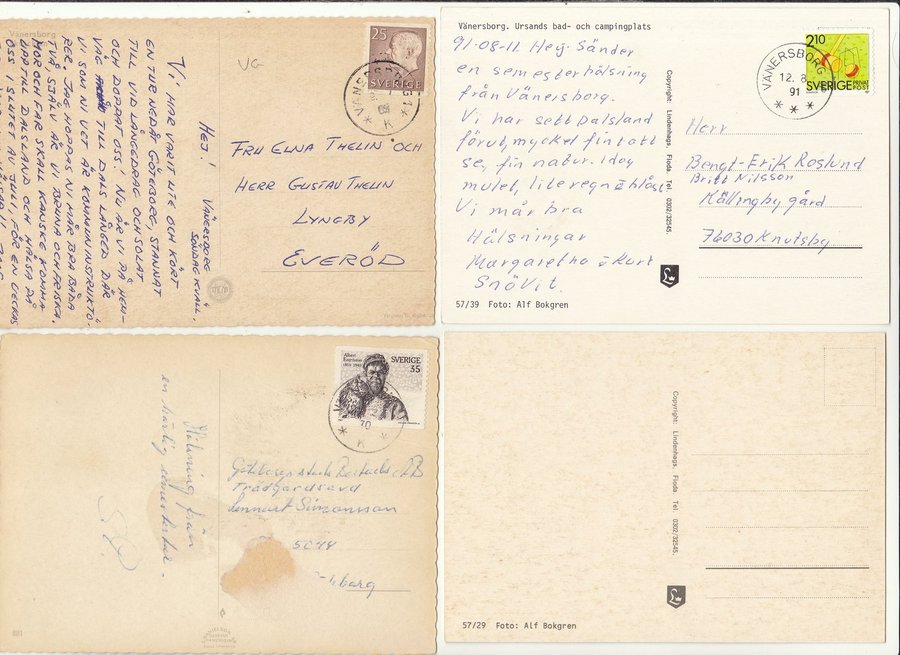 Vänersborg
VÄNERSBORG
SÖNDAG KVÄLL.
HEJ!
VI HAR VARIT UTE OCH KÖRT
EN TUR NEDÅT GÖTEBORG, STANNAT
TILL VID LÅNGEDRAG OCH SOLAT
OCH DOPPAT OSS! NU ÄR VI PÅ HEM-
VÄG TILL DALS LÅNGED DÄR
VI SOM NI VET ÄR KOMMUNINSTRUKTÖ-
RER. JAG HOPPAS NI MÅR BRA BÅDA
TVÅ. SJÄLV ÄR VI BRUNA OCH FRISKA.
MOR OCH FAR SKALL KANSKE KOMMA
UPP TILL DALSLAND OCH HÄLSA PÅ
OSS I SLUTET AV JULI, FÖR EN VECKAS
VG
25
SVERIGE
FRU ELNA THELIN OCH
HERR GUSTAV THELIN
LYNGBY
EVERÖD
Vänersborg. Ursands bad- och campingplats
91-08-11. Hej Sänder
en semesterhälsning
från Vänersborg.
Vi har sett Dalsland
förut, mycket fint att
se, fin natur. idag
mulet, lite regn o blåst
Vi mår bra
Hälsningar
Margaretha o Kurt
Snövit.
57/39 Foto: Alf Bokgren
Copyright: Lindenhags. Floda Tel. 0302/32545.
VÄNERSBORG
12. 8
91
2.10
SVERIGE
PRIVAT
POST
Herr
Bengt-Erik Roslund
Britt Nilsson
Källingby gård
76030 Knutby
Hälsning från
en härlig semestertur.
Albert
Engström
SVERIGE
35
70
K
Trädgårdsavd
Lennart Simonsson
5048
881
Copyright: Lindenhags. Floda Tel. 0302/32545.
57/29 Foto: Alf Bokgren